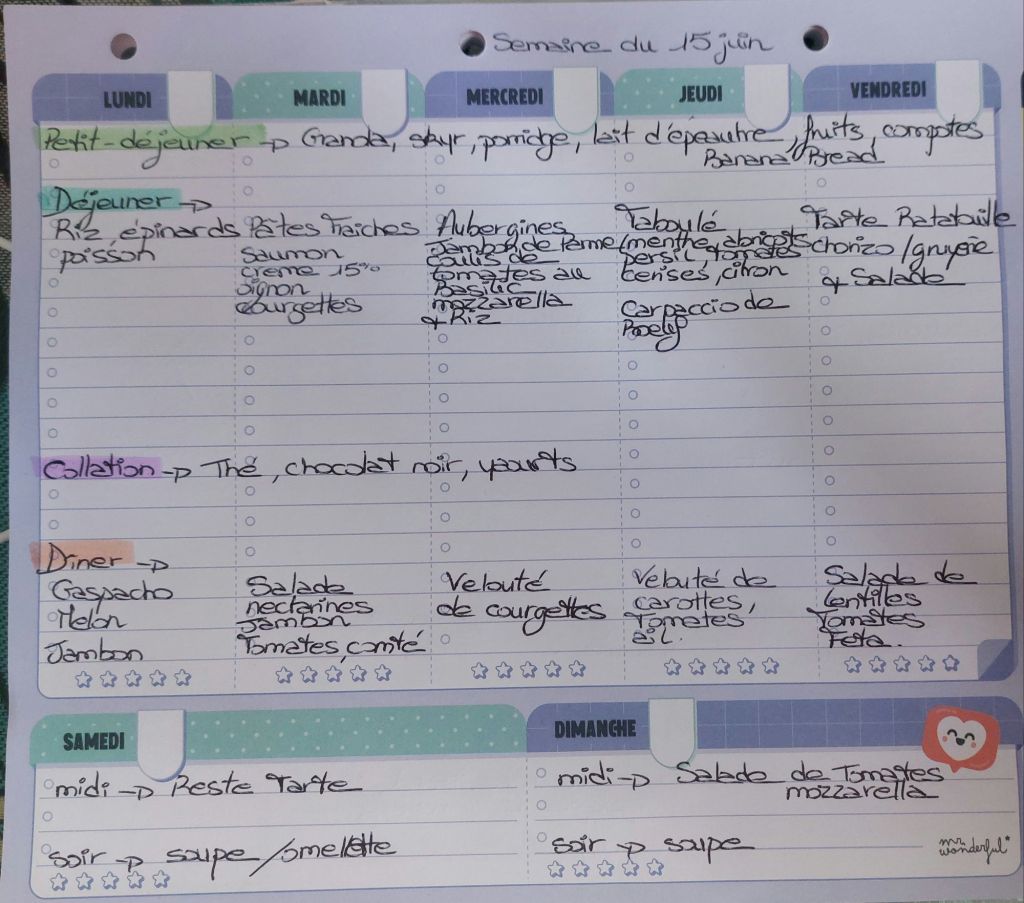 Semaine du 15 juin
LUNDI MARDI MERCREDI JEUDI VENDREDI
Petit-déjeuner → Granola, skyr, porridge, lait d'épeautre, fruits, compotes
Banana Bread
Déjeuner →
Riz épinards
poisson
Pâtes fraiches
Saumon
creme 15%
oignon
courgettes
Aubergines
Jambon de Parme
coulis de
tomates au
Basilic
mozzarella
& Riz
Taboulé
/menthe abricots
persil tomates
cerises, citron
Carpaccio de
Boeuf
Tarte Ratatouille
chorizo/gruyère
& Salade
Collation → Thé, chocolat noir, yaourts
Diner →
Gaspacho
Melon
Jambon
Salade
nectarines
Jambon
Tomates, comté
Velouté
de courgettes
Velouté de
carottes,
Tomates
ail.
Salade de
lentilles
Tomates
Feta.
SAMEDI
midi → Reste Tarte
soir → soupe/omelette
DIMANCHE
midi → Salade de Tomates
mozzarella
soir → soupe
mr.
wonderful*